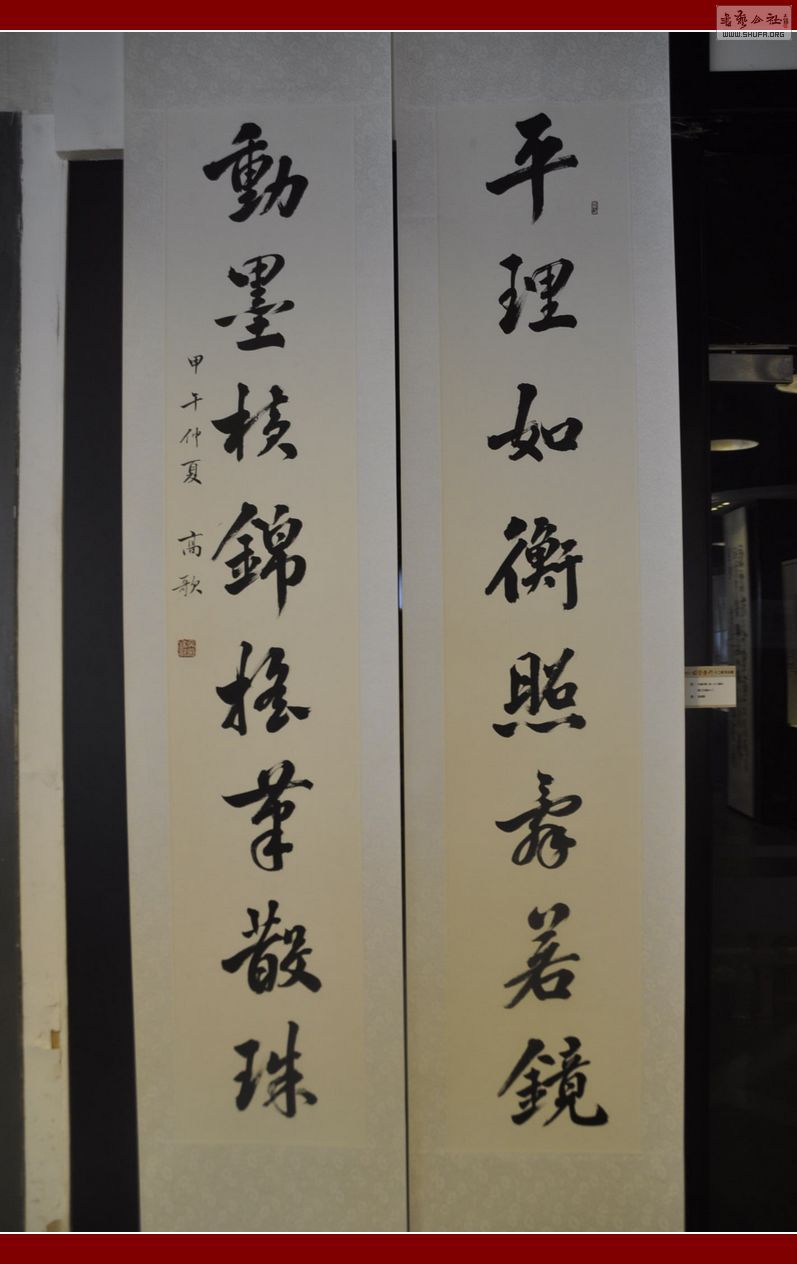 平理如衡照辭若鏡
動墨横錦摇筆散珠
甲午仲夏 高歌
書藝公社
WWW.SHUFA.ORG